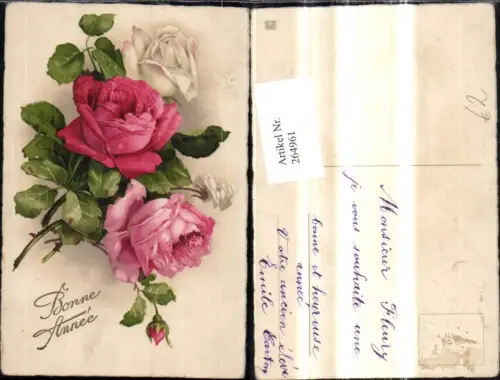 Bonne
Année
Artikel Nr.
264961
Monsieur Fleury
je vous souhaite une
bonne et heureuse
année
Votre ancien élève
Emile